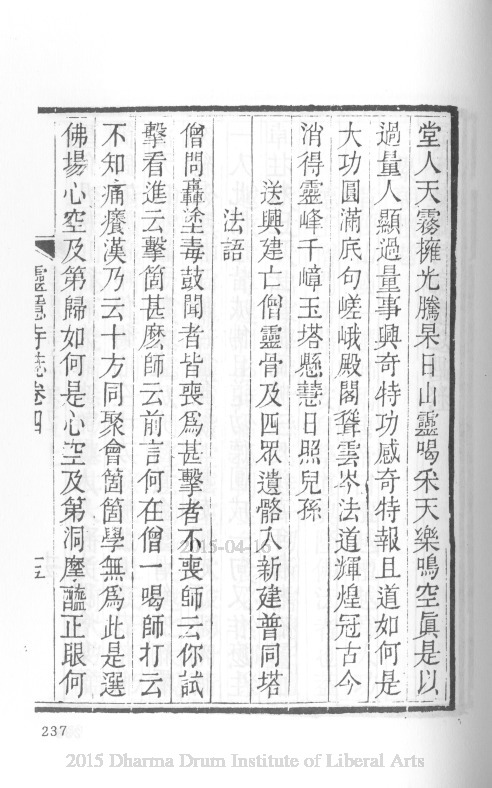 堂人天霧擁光騰杲日山靈喝采天樂鳴空眞是以
過量人顯過量事興奇特功感奇特報且道如何是
大功圓滿底句嵯峨殿閣聳雲岑法道輝煌冠古今
消得靈峰千嶂玉塔懸慧日照兒孫
送興建亡僧靈骨及四眾遺骼入新建普同塔
法語
僧問轟塗毒鼓聞者皆喪爲甚擊者不喪師云你試
擊看進云擊箇甚麼師云前言何在僧一喝師打云
不知痛癢漢乃云十方同聚會箇箇學無爲此是選
佛場心空及第歸如何是心空及第洞摩醯正眼何
靈隱寺誌卷四
237
2015-04-16
2015 Dharma Drum Institute of Liberal Arts